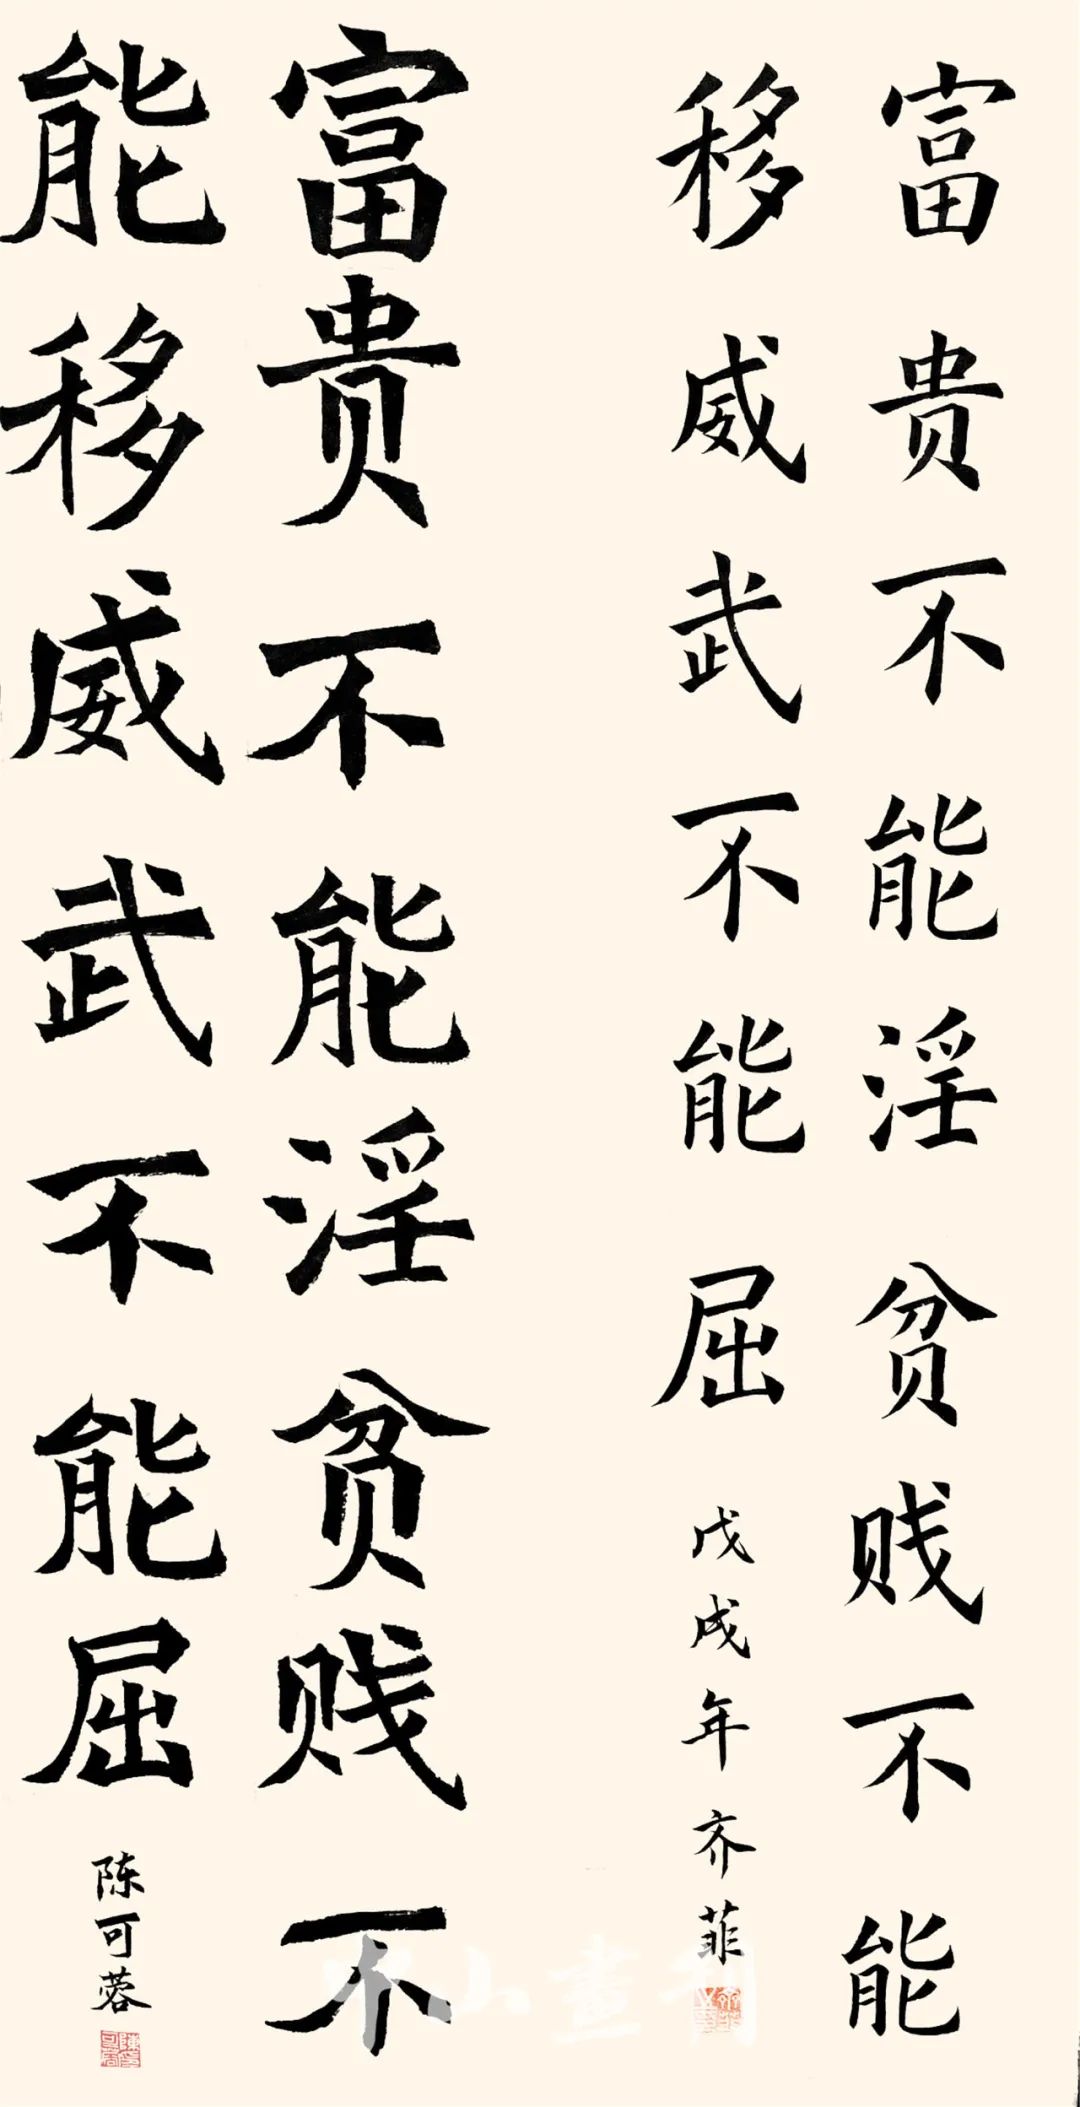 富贵不能淫贫贱不能
移威武不能屈
戊戌年齐菲
富贵不能淫贫贱不
能移威武不能屈
陈可蓉
山畫刊